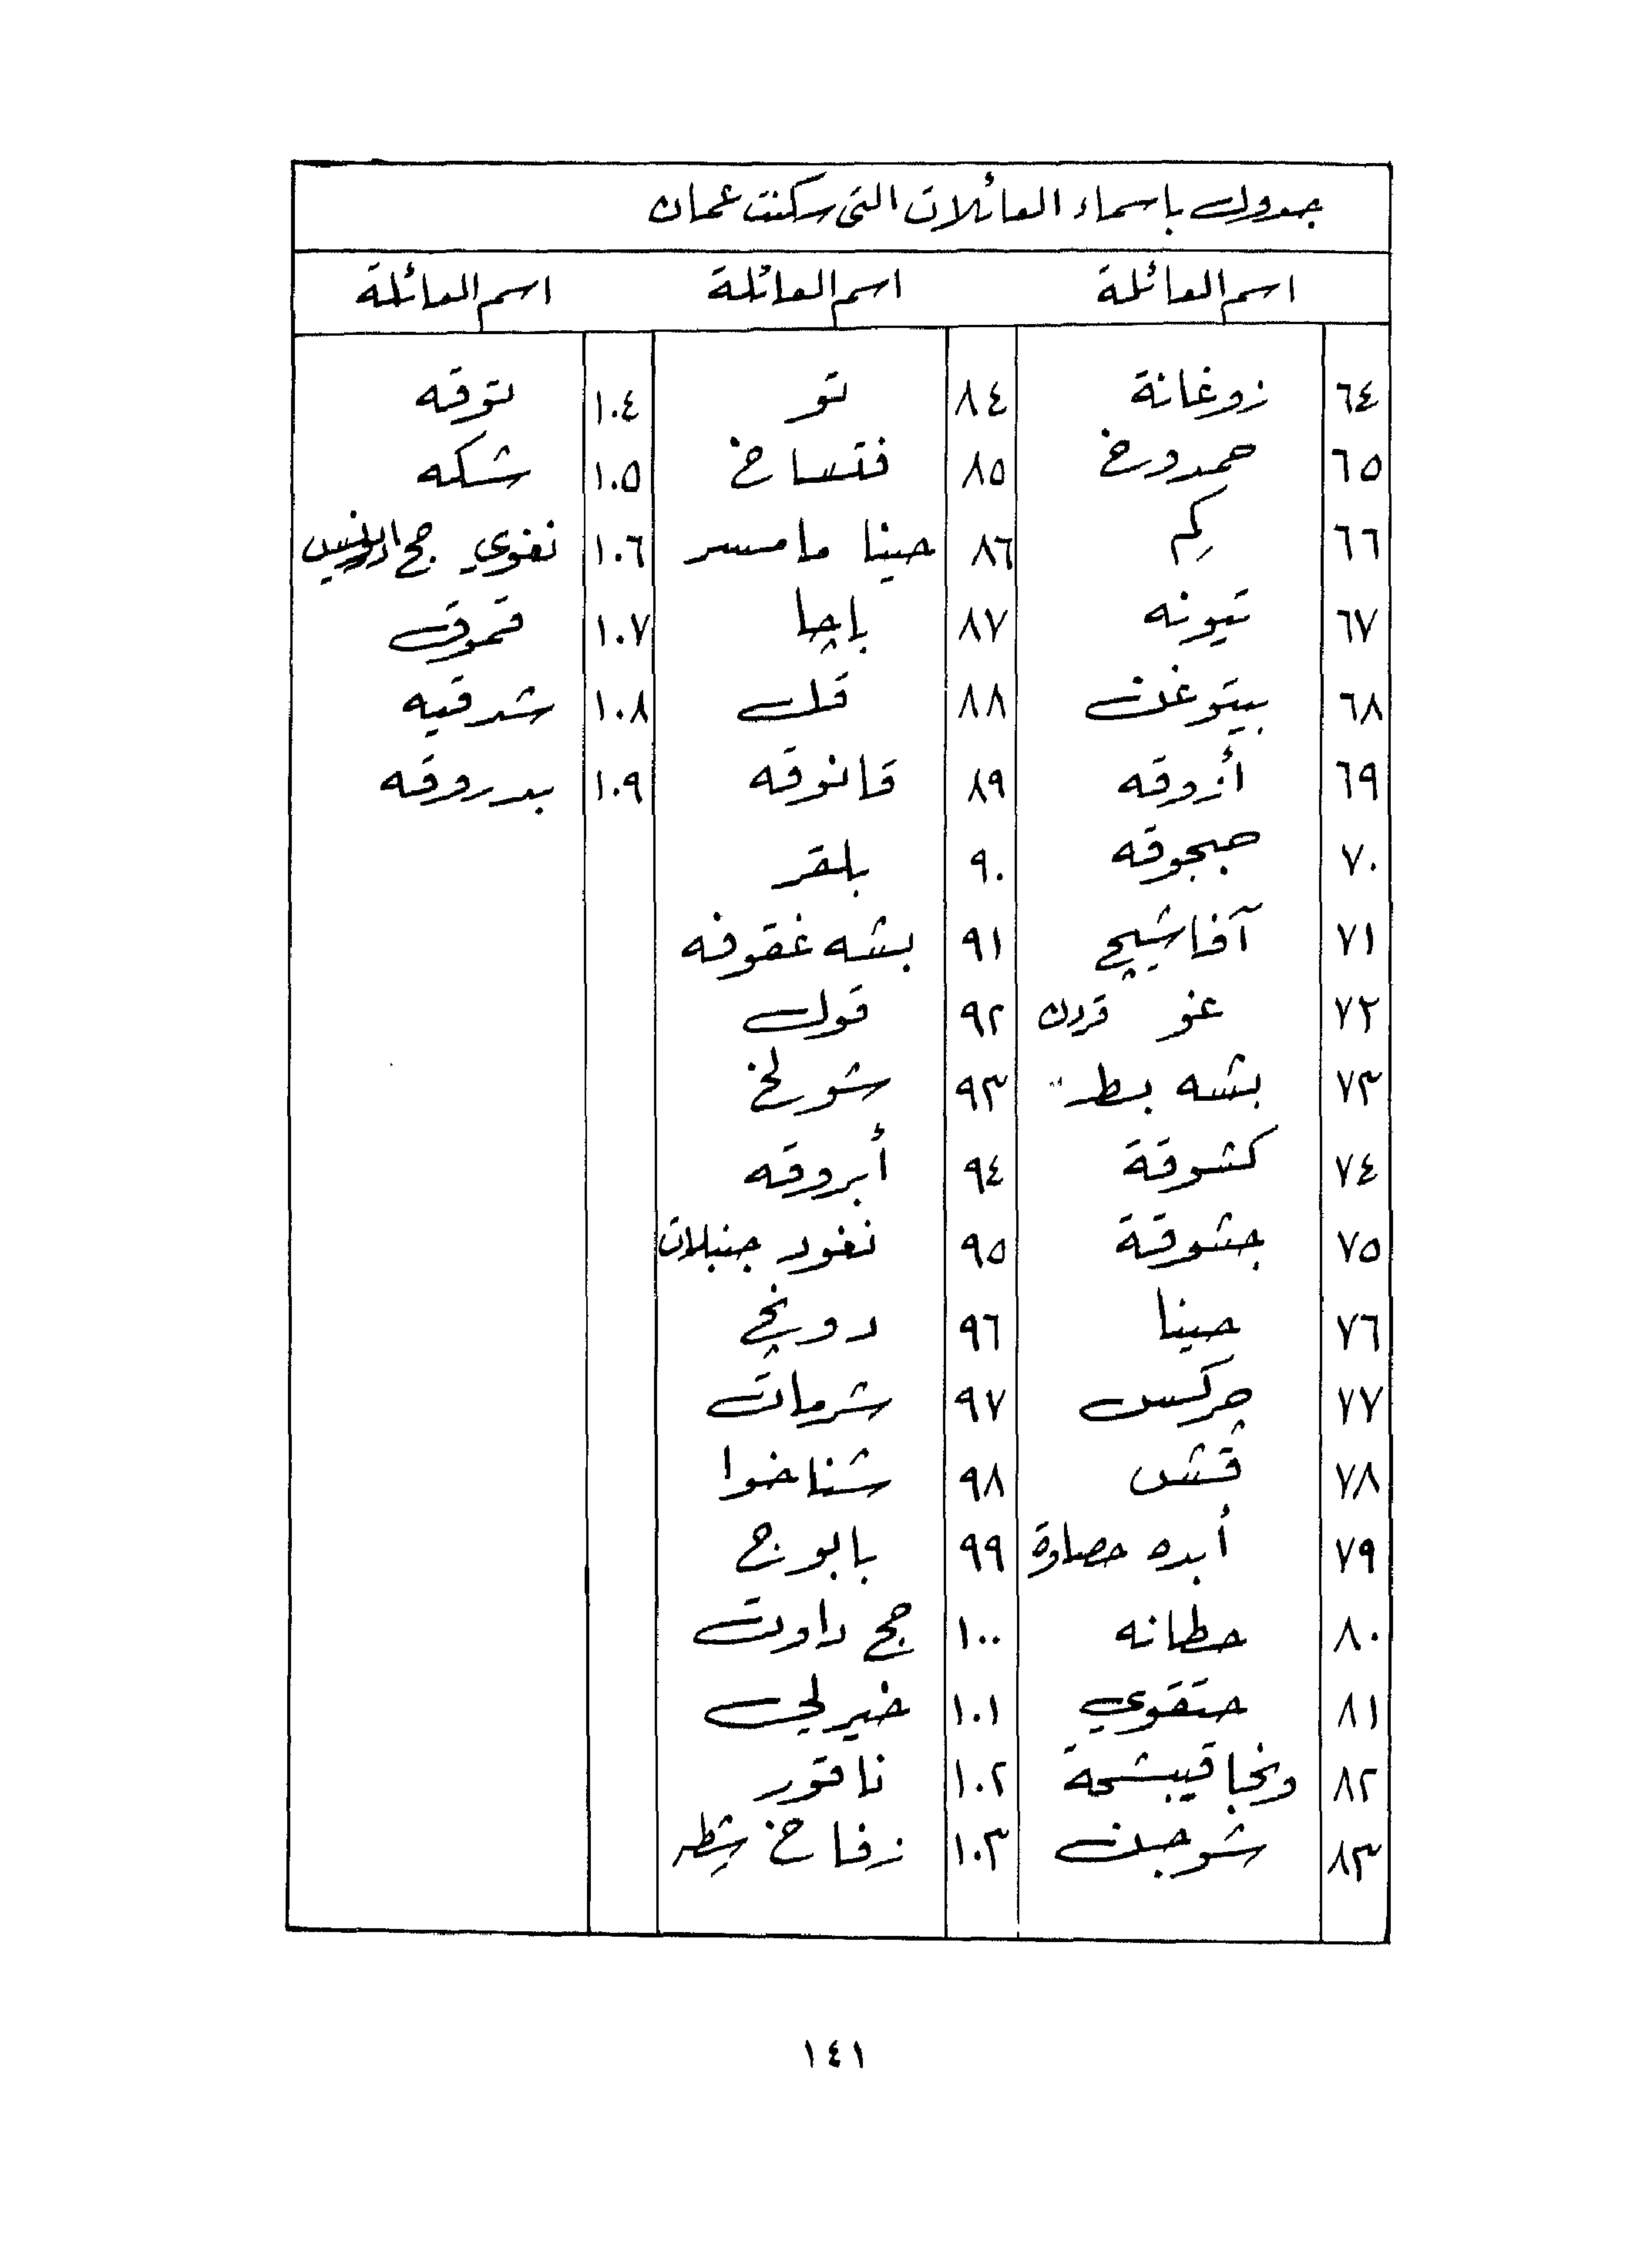 جدول باسماء العائلات التي سكنت عمان
اسم العائلة اسم العائلة اسم العائلة
٦٤ زوغانة ٨٤ تو ١٠٤ توقه
٦٥ حمدوخ ٨٥ فتساخ ١٠٥ شكه
٦٦ كم ٨٦ حينا مامسر ١٠٦ نغوي حج
٦٧ تيونه ٨٧ باچا ١٠٧ قموق
٦٨ بيتوغن ٨٨ قل ١٠٨ شدقيه
٦٩ أزوقه ٨٩ قانوقه ١٠٩ بدروقه
٧٠ حبجوقه ٩٠ بلقر
٧١ آفاشيج ٩١ بشه غقوفه
٧٢ غو قردن ٩٢ قول
٧٣ بشه بسطر ٩٣ شورلخ
٧٤ كشوقة ٩٤ أبروقه
٧٥ جشوقة ٩٥ نغود جنبلات
٧٦ حينا ٩٦ دونچ
٧٧ چركس ٩٧ شرمات
٧٨ قش ٩٨ شناخوا
٧٩ أبده حصاوة ٩٩ بابوج
٨٠ حطانه ١٠٠ حج داوت
٨١ حتقوي ١٠١ خيرلي
٨٢ ١٠٢ ناقور
٨٣ شوجن ١٠٣ زفاخ
١٤١